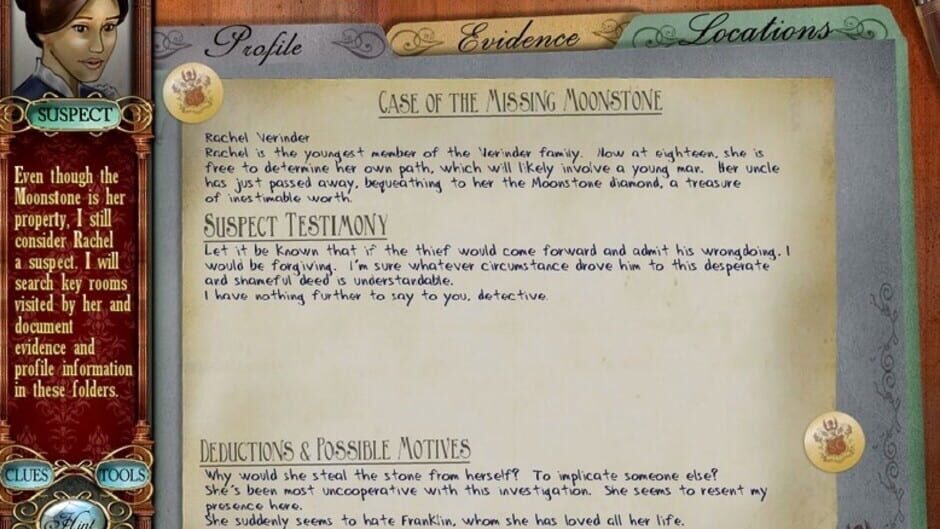 Profile
Evidence
Locations
SUSPECT
Even though the
Moonstone is her
property, I still
consider Rachel
a suspect. I will
search key rooms
visited by her and
document
evidence and
profile information
in these folders.
CLUES
TOOLS
Hint
CASE OF THE MISSING MOONSTONE
Rachel Verinder
Rachel is the youngest member of the Verinder family. Now at eighteen, she is
free to determine her own path, which will likely involve a young man. Her uncle
has just passed away, bequeathing to her the Moonstone diamond, a treasure
of inestimable worth.
SUSPECT TESTIMONY
Let it be known that if the thief would come forward and admit his wrongdoing, I
would be forgiving. I'm sure whatever circumstance drove him to this desperate
and shameful deed is understandable.
I have nothing further to say to you, detective.
DEDUCTIONS & POSSIBLE MOTIVES
Why would she steal the stone from herself? To implicate someone else?
She's been most uncooperative with this investigation. She seems to resent my
presence here.
She suddenly seems to hate Franklin, whom she has loved all her life.